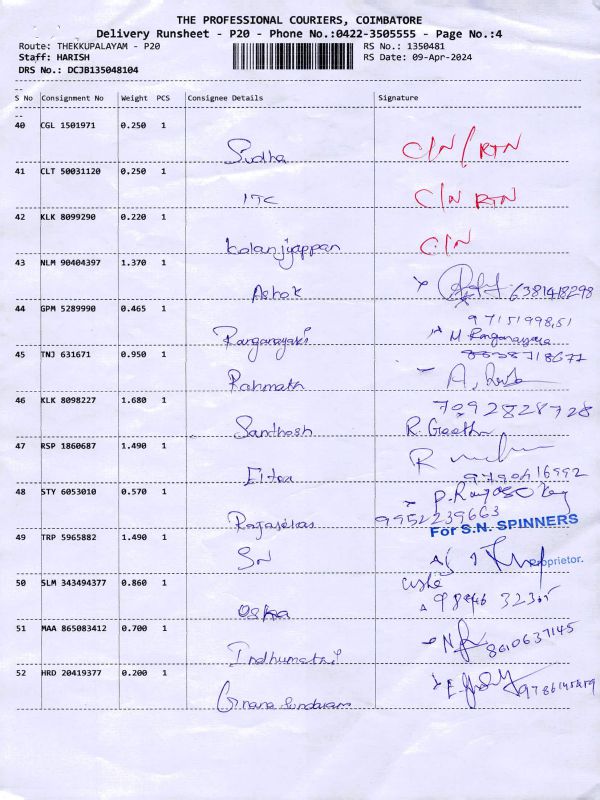 THE PROFESSIONAL COURIERS, COIMBATORE
Delivery Runsheet - P20 - Phone No.:0422-3505555 - Page No.:4
Route: THEKKUPALAYAM - P20 RS No.: 1350481
Staff: HARISH RS Date: 09-Apr-2024
DRS No.: DCJB135048104
S No Consignment No Weight PCS Consignee Details Signature
40 CGL 1501971 0.250 1
Sudha C/N / RTN
41 CLT 50031120 0.250 1
ITC C/N RTN
42 KLK 8099290 0.220 1
Kolanjiyappan C/N
43 NLM 90404397 1.370 1
Ashok 6381418298
44 GPM 5289990 0.465 1
9715199851
Ranganayaki M Ranganayaki
45 TNJ 631671 0.950 1
Rahmath A.
46 KLK 8098227 1.680 1
7092828728
Santhosh R. Geetha
47 RSP 1860687 1.490 1
R
48 STY 6053010 0.570 1
9952239663
For S.N. SPINNERS
49 TRP 5965882 1.490 1
SN Proprietor.
50 SLM 343494377 0.860 1
Usha
51 MAA 865083412 0.700 1
8610637145
Indhumathi
52 HRD 20419377 0.200 1
Gnana Sundaram